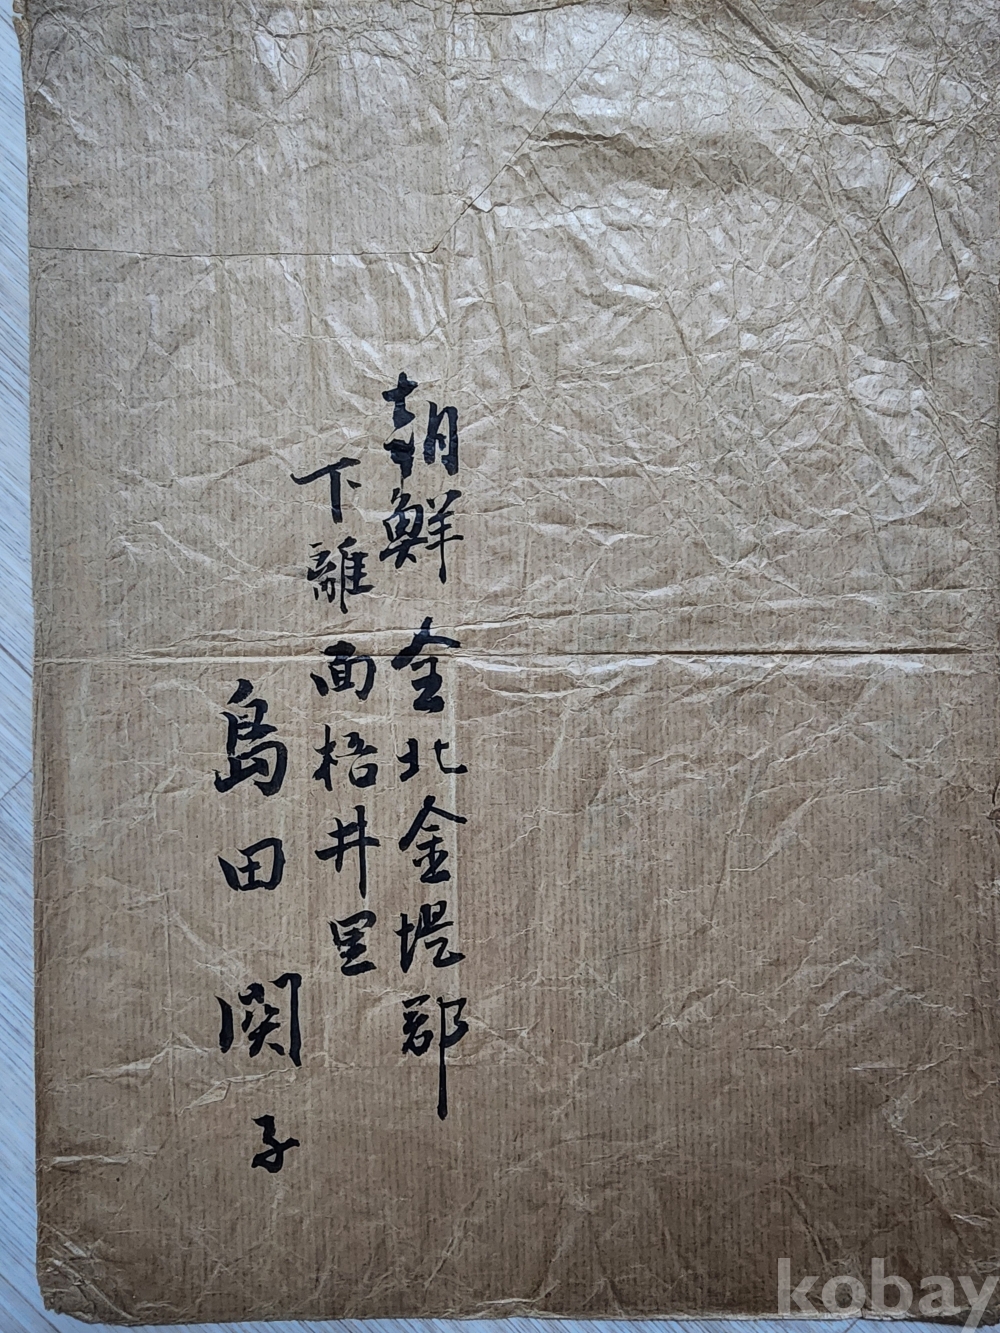 朝鮮 全北金堤郡
下離面梧井里
島田関子
kobay